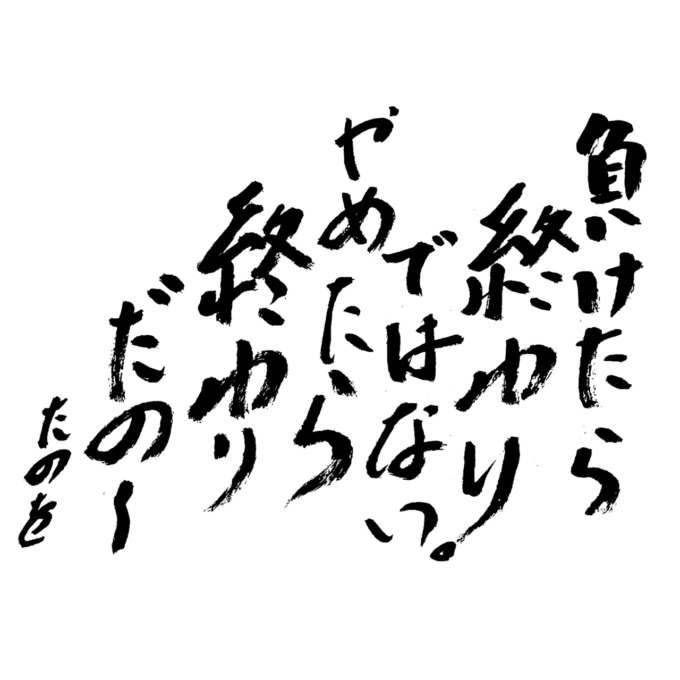 負けたら
終わり
ではない。
やめたら
終わり
だのー
たのを